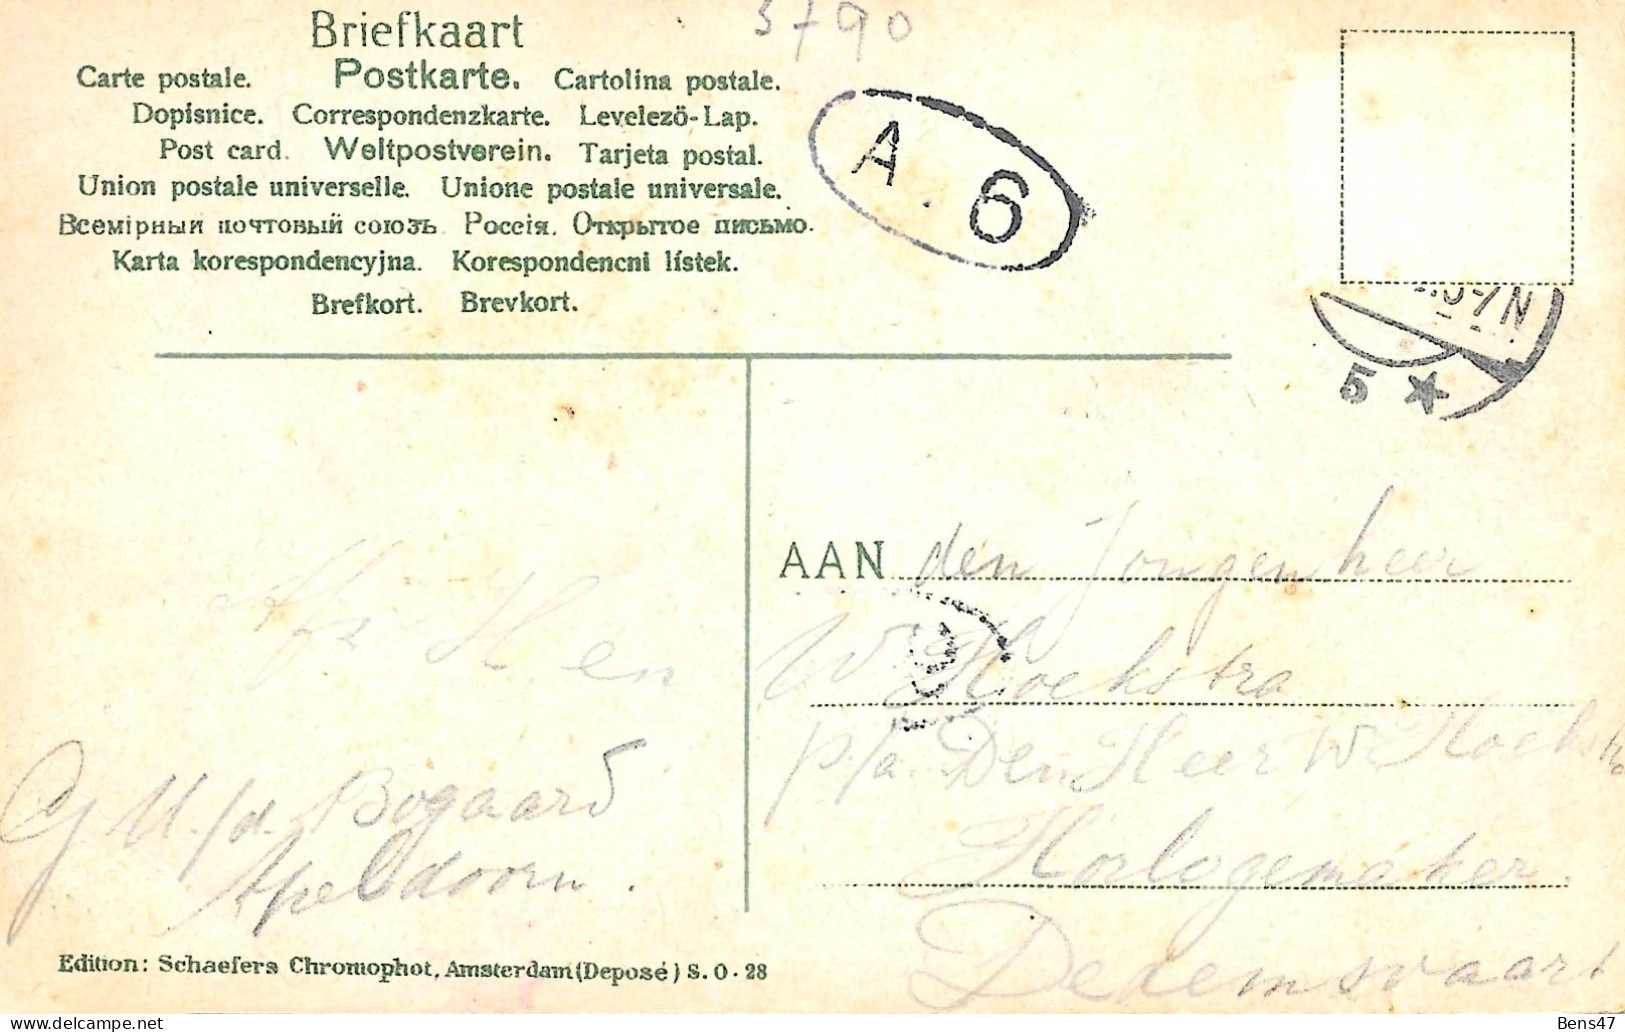 3790
Briefkaart
Carte postale. Postkarte. Cartolina postale.
Dopisnice. Correspondenzkarte. Levelezö-Lap.
Post card. Weltpostverein. Tarjeta postal.
Union postale universelle. Unione postale universale.
Всемірный почтовый союзъ Россія. Открытое письмо.
Karta korespondencyjna. Korespondencní lístek.
Brefkort. Brevkort.
A 6
N
5 *
AAN den Jongenheer
W Hoekstra
p/a. Den Heer W Hoekstra
Horlogemaker.
Dedemsvaart
Afz Hen
G M. v/d. Bogaard
Apeldoorn.
Edition: Schaefers Chromophot, Amsterdam (Deposé) S. O. 28
Bens47